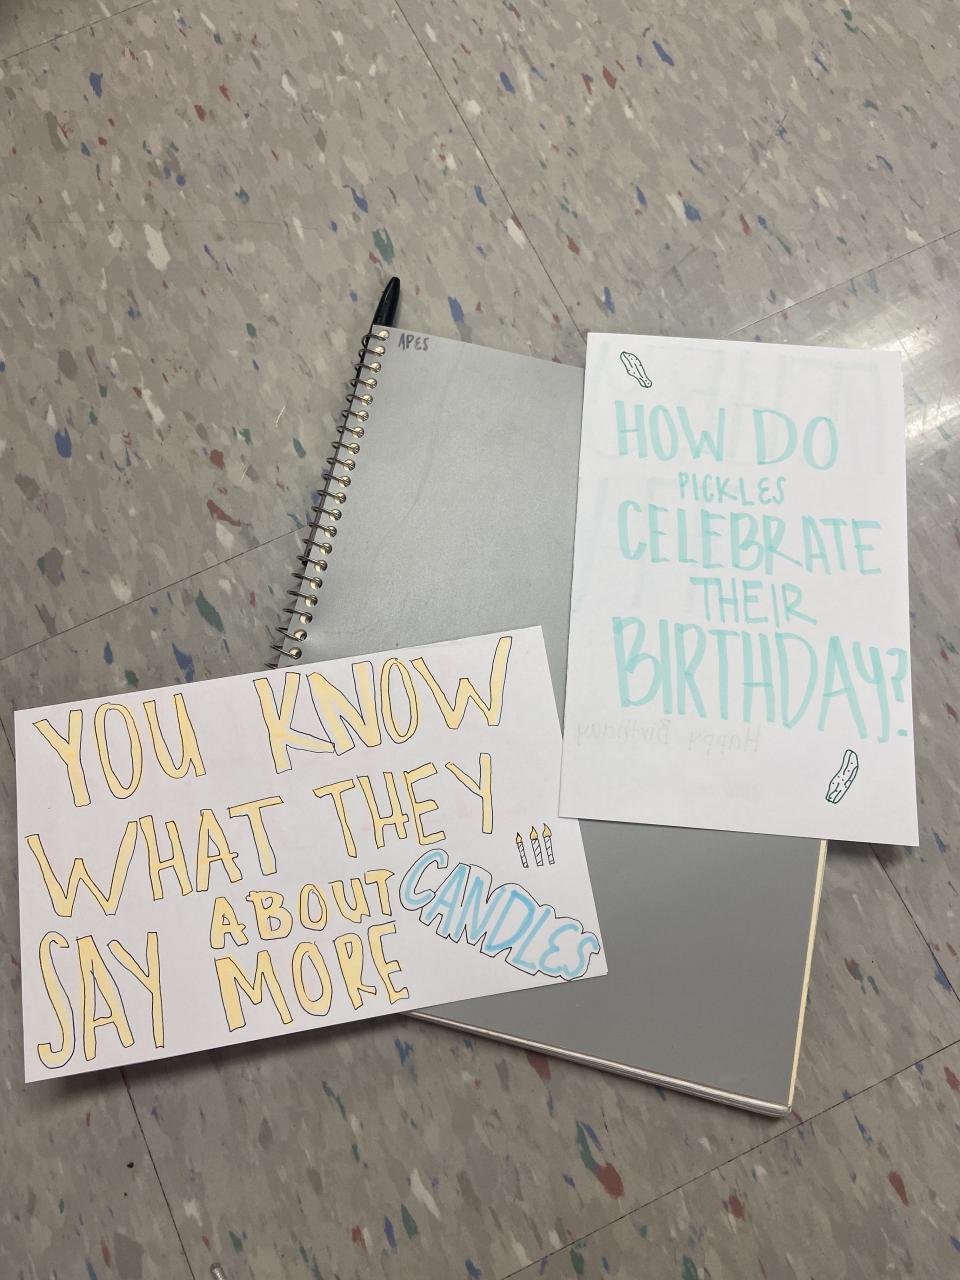 APES
HOW DO
PICKLES
CELEBRATE
THEIR
BIRTHDAY?
Happy Birthday
YOU KNOW
WHAT THEY
SAY ABOUT
MORE
CANDLES